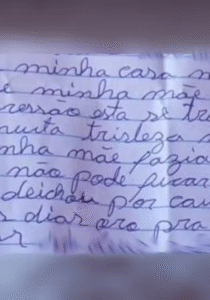 minha casa m
e minha mãe
ressão esta se tra
muita tristeza
nha mãe fazia
não pode ficar
deichou por cau
s dias ero pra